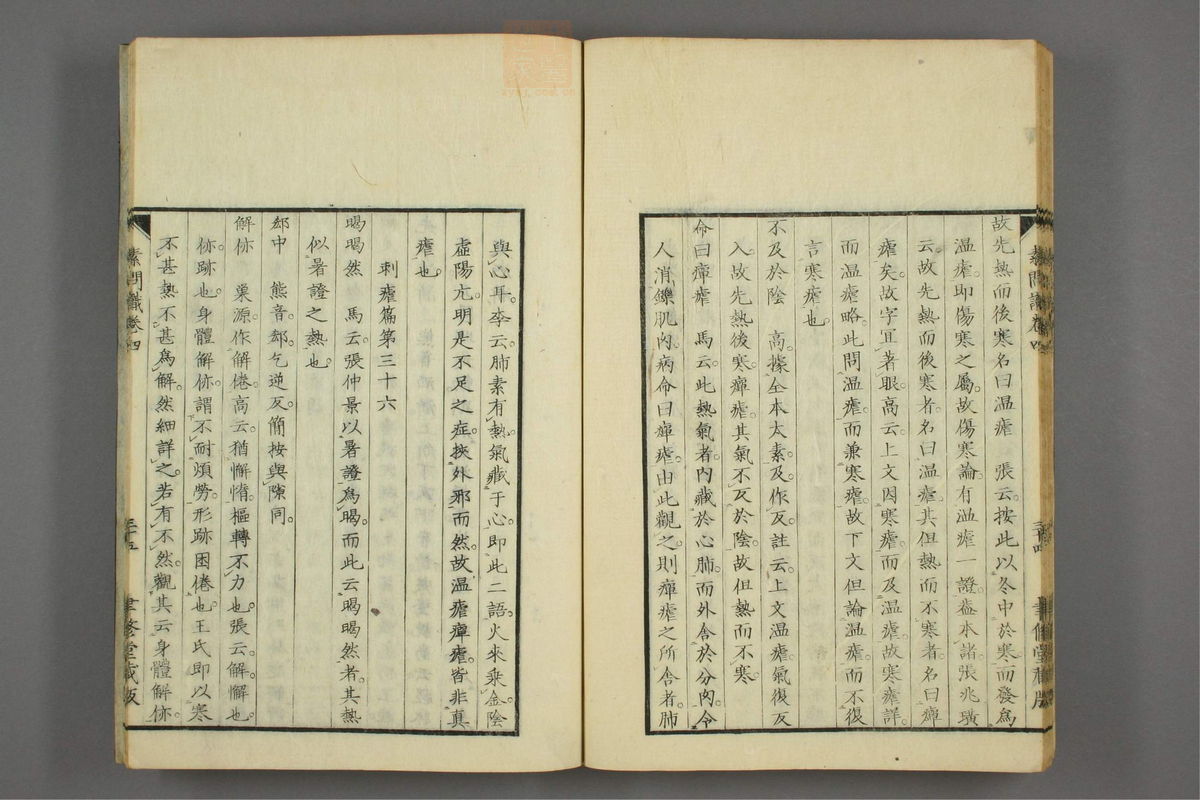 故先熱而後寒名曰温瘧　張云按此以冬中於寒而發爲
温瘧即傷寒之屬故傷寒論有温瘧一證蓋本諸張兆璜
云故先熱而後寒者名曰温瘧其但熱而不寒者名曰癉
瘧矣故字宜著眼高云上文因寒瘧而及温瘧故寒瘧詳
而温瘧略此問温瘧而兼寒瘧故下文但論温瘧而不復
言寒瘧也
不及於陰　高據全本太素及作反註云上文温瘧氣復反
入故先熱後寒癉瘧其氣不反於陰故但熱而不寒
命曰癉瘧　馬云此熱氣者内藏於心肺而外舍於分肉令
人消鑠肌肉病命曰癉瘧由此觀之則癉瘧之所舍者肺
素問識卷四
三十四
聿修堂藏版
與心耳李云肺素有熱氣藏于心即此二語火來乘金陰
虛陽亢明是不足之症挾外邪而然故温瘧癉瘧皆非真
瘧也
刺瘧篇第三十六
暍暍然　馬云張仲景以暑證爲暍而此云暍暍然者其熱
似暑證之熱也
郄中　熊音郄乞逆反簡按與隙同
解㑊　巢源作解倦高云猶懈惰樞轉不力也張云解懈也
㑊跡也身體解㑊謂不耐煩勞形跡困倦也王氏即以寒
不甚熱不甚爲解然細詳之若有不然觀其云身體解㑊
素問識卷四
三十五
聿修堂藏版